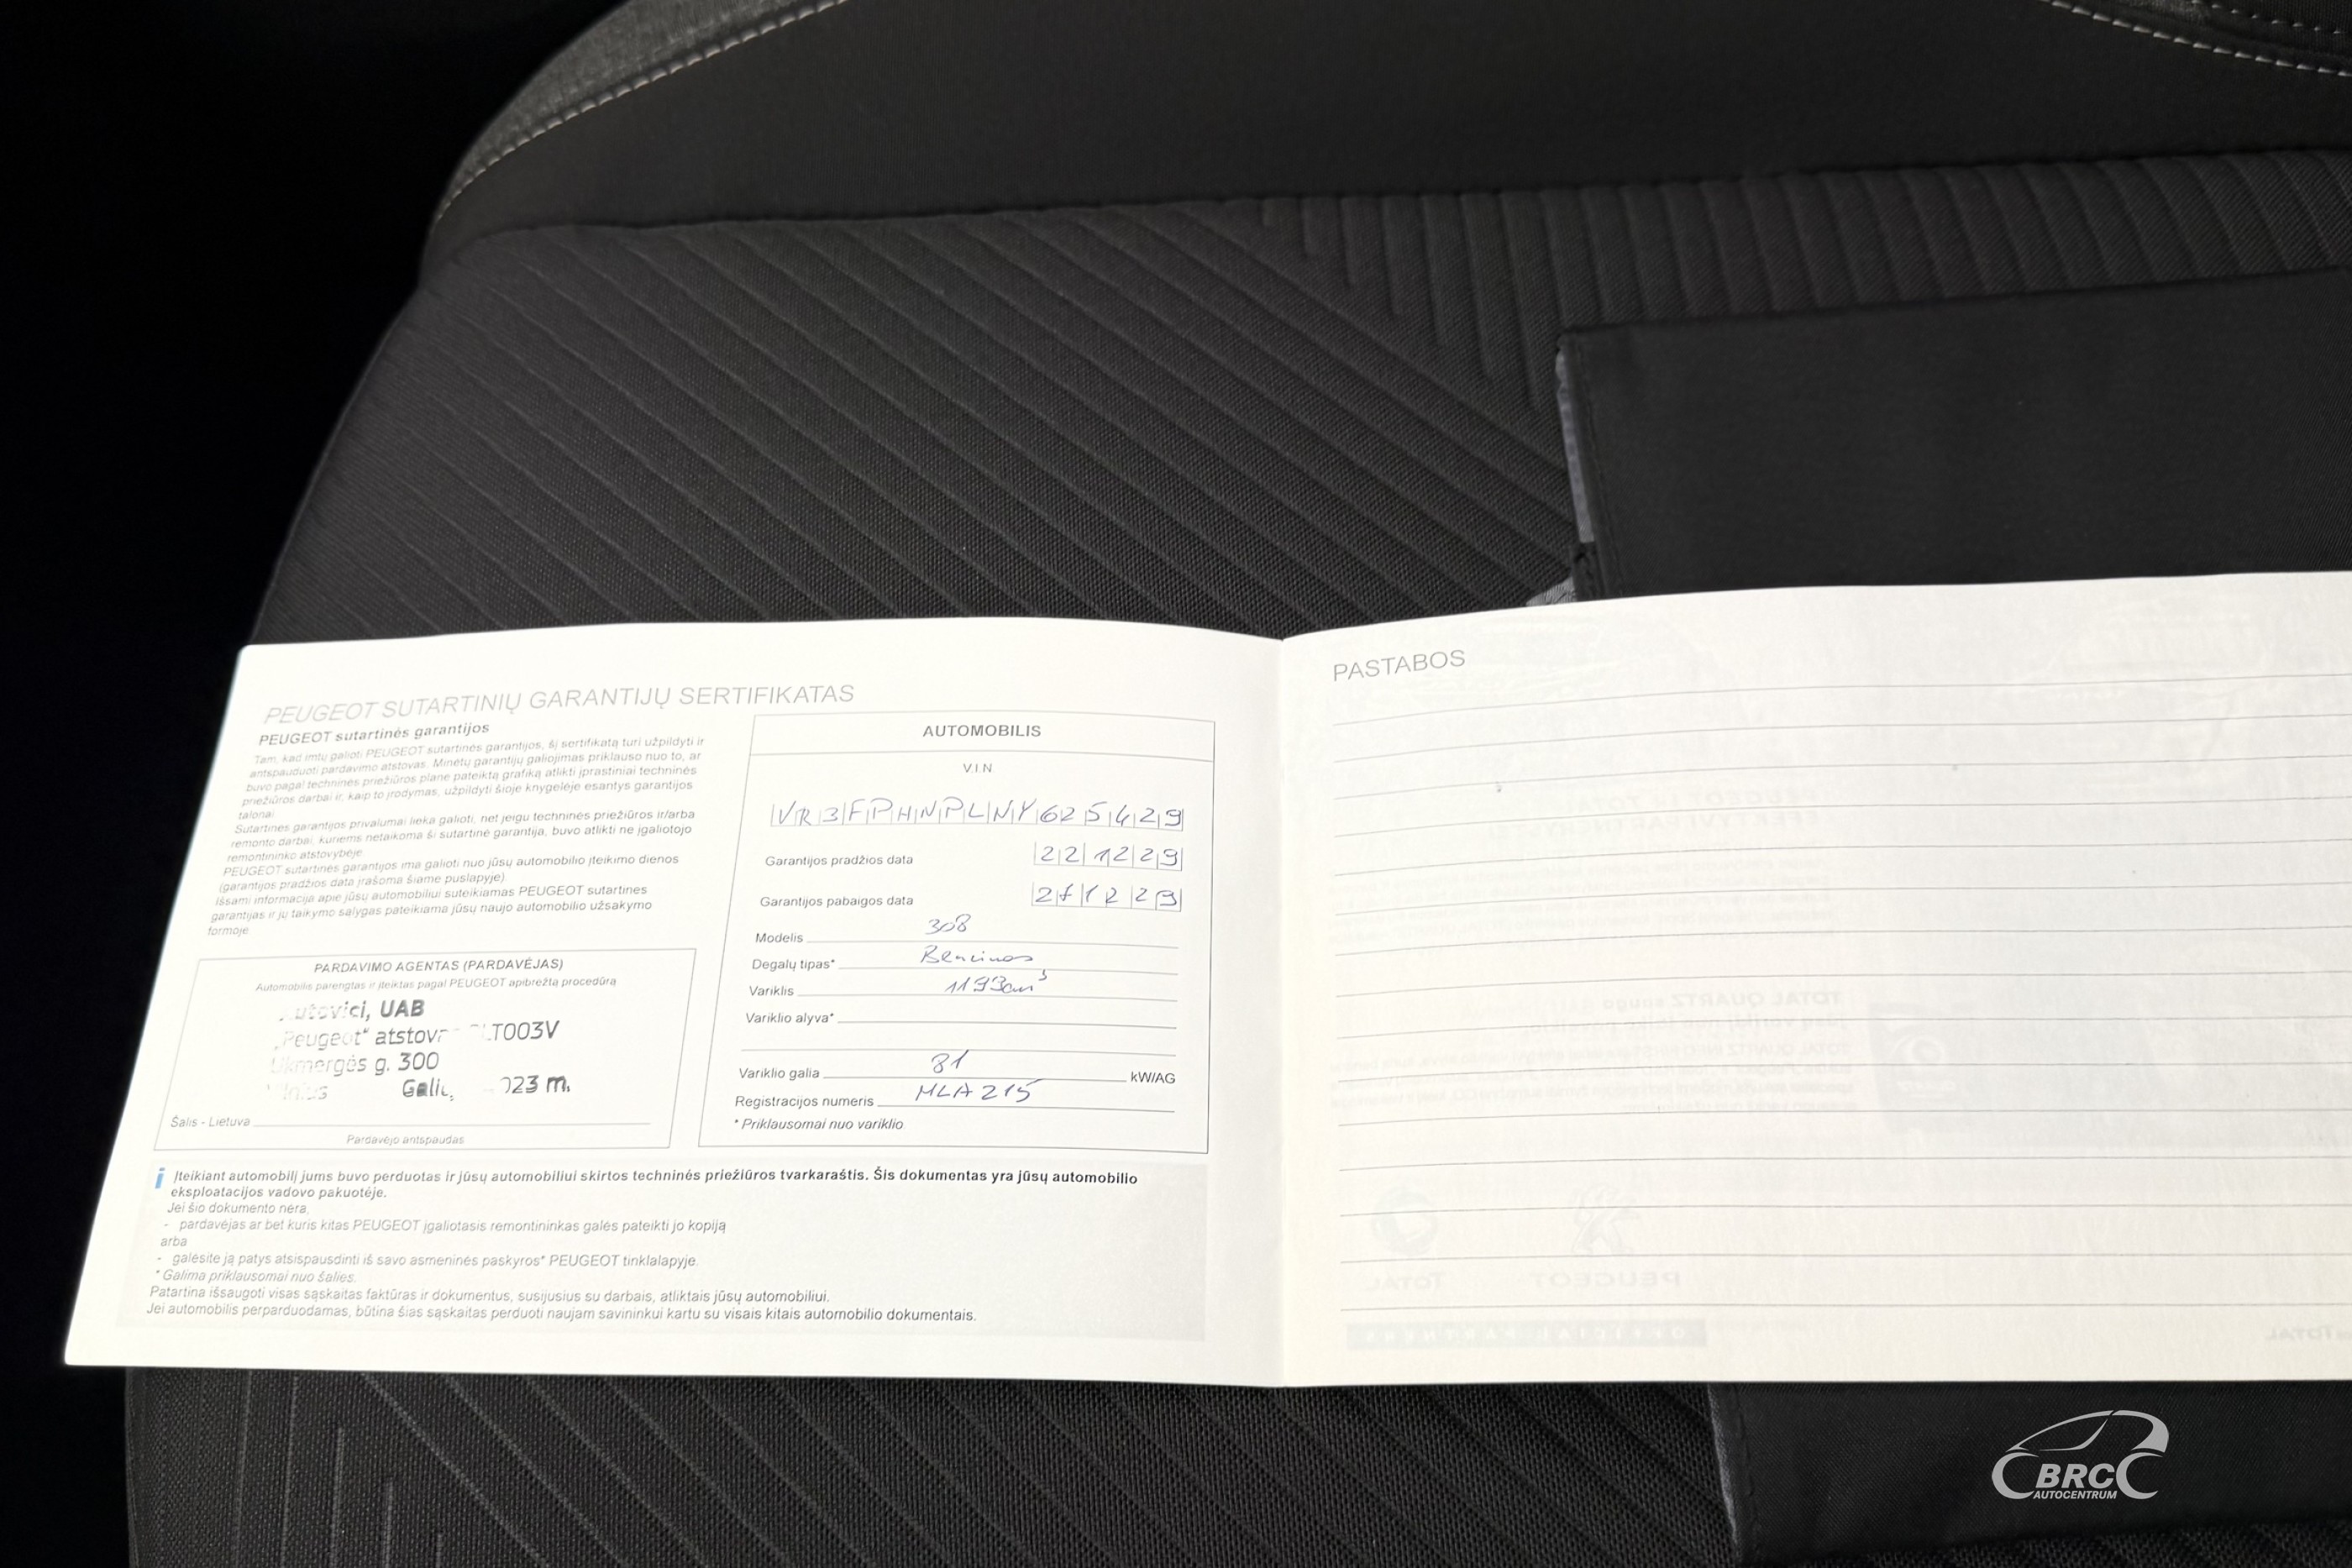 PEUGEOT SUTARTINIŲ GARANTIJŲ SERTIFIKATAS
PEUGEOT sutartinės garantijos
Tam, kad imtų galioti PEUGEOT sutartinės garantijos, šį sertifikatą turi užpildyti ir
antspauduoti pardavimo atstovas. Minėtų garantijų galiojimas priklauso nuo to, ar
buvo pagal techninės priežiūros plane pateiktą grafiką atlikti įprastiniai techninės
priežiūros darbai ir, kaip to įrodymas, užpildyti šioje knygelėje esantys garantijos
talonai.
Sutartinės garantijos privalumai lieka galioti, net jeigu techninės priežiūros ir/arba
remonto darbai, kuriems netaikoma ši sutartinė garantija, buvo atlikti ne įgaliotojo
remontininko atstovybėje.
PEUGEOT sutartinės garantijos ima galioti nuo jūsų automobilio įteikimo dienos
(garantijos pradžios data įrašoma šiame puslapyje).
Išsami informacija apie jūsų automobiliui suteikiamas PEUGEOT sutartines
garantijas ir jų taikymo sąlygas pateikiama jūsų naujo automobilio užsakymo
formoje.
PARDAVIMO AGENTAS (PARDAVĖJAS)
Automobilis parengtas ir įteiktas pagal PEUGEOT apibrėžtą procedūrą
UAB
„Peugeot“ LT003V
Ukmergės g. 300
Vilnius m.
Šalis - Lietuva
Pardavėjo antspaudas
AUTOMOBILIS
V.I.N.
VR3FPHNPLNY625429
Garantijos pradžios data 221229
Garantijos pabaigos data 271229
Modelis 308
Degalų tipas* Benzinas
Variklis 1199cm³
Variklio alyva*
Variklio galia 81 kW/AG
Registracijos numeris MLA215
* Priklausomai nuo variklio.
i Įteikiant automobilį jums buvo perduotas ir jūsų automobiliui skirtos techninės priežiūros tvarkaraštis. Šis dokumentas yra jūsų automobilio
eksploatacijos vadovo pakuotėje.
Jei šio dokumento nėra,
- pardavėjas ar bet kuris kitas PEUGEOT įgaliotasis remontininkas galės pateikti jo kopiją
arba
- galėsite ją patys atsispausdinti iš savo asmeninės paskyros* PEUGEOT tinklalapyje.
* Galima priklausomai nuo šalies.
Patartina išsaugoti visas sąskaitas faktūras ir dokumentus, susijusius su darbais, atliktais jūsų automobiliui.
Jei automobilis perparduodamas, būtina šias sąskaitas perduoti naujam savininkui kartu su visais kitais automobilio dokumentais.
PASTABOS
BRC
AUTOCENTRUM